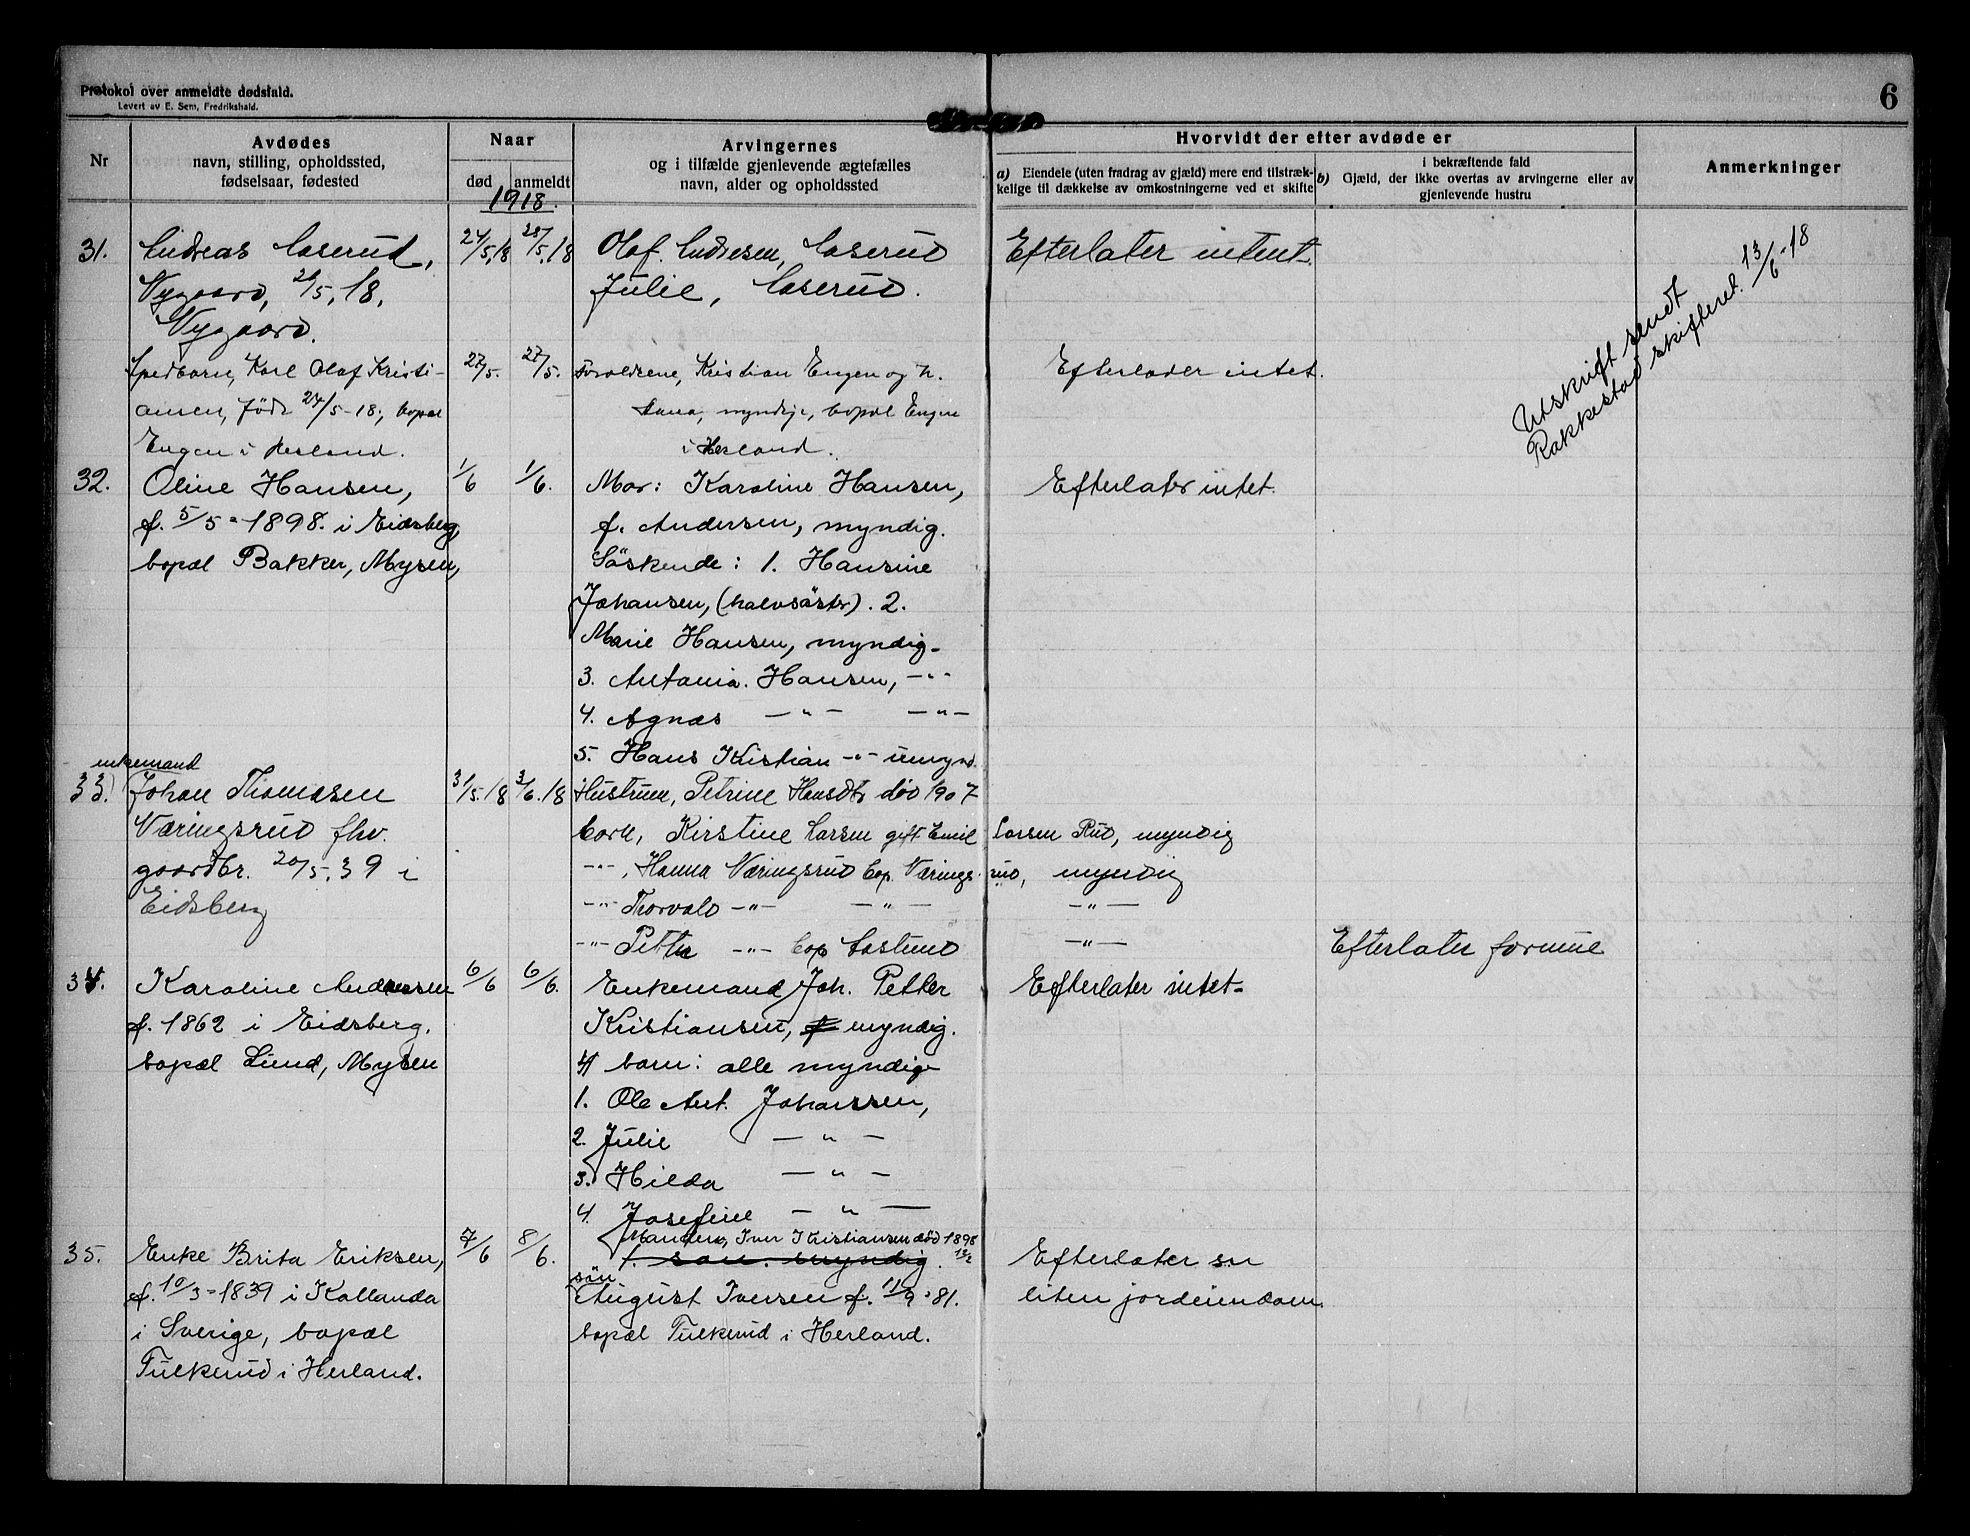 Protokol over anmeldte dødsfald.
Levert av E. Sem, Fredrikshald.
6
Nr
Avdødes
navn, stilling, opholdssted,
fødselsaar, fødested
Naar
død anmeldt
1918.
Arvingernes
og i tilfælde gjenlevende ægtefælles
navn, alder og opholdssted
Hvorvidt der efter avdøde er
a) Eiendele (uten fradrag av gjæld) mere end tilstræk-
kelige til dækkelse av omkostningerne ved et skifte
i bekræftende fald
b) Gjæld, der ikke overtas av arvingerne eller av
gjenlevende hustru
Anmerkninger
31. Andreas Laserud, 24/5.18 28/5.18 Olaf Andresen, Laserud Efterlater intent.
Nygaard, 21/5.18. Julie, Laserud.
Nygaard.
Utskrift sendt
Rakkestad skifteret. 13/6-18
Spedbarn, Karl Olaf Kristi- 27/5. 27/5. Foreldrene, Kristian Engen og h. Efterlader intet.
ansen, født 24/5-18, bopæl myndige, bopæl Engen
Engen i Herland. i Herland.
32. Oline Hansen, 1/6 1/6. Mor: Karoline Hansen, Efterlater intet.
f. 5/5-1898. i Eidsberg, f. Andersen, myndig.
bopæl Bakker, Mysen, Söskende: 1. Hansine
Johansen, (halvsöster). 2.
Marie Hansen, myndig-
3. Antonia. Hansen, -"-
4. Agnæs -"- -"-
5. Hans Kristian -"- umynd.
enkemand
33. Johan Thomasen 31/5.18 3/6.18 Hustruen, Petrine Hansdtr død 1907
Næringsrud fhv. barn, Kirstine Larsen gift Emil Larsen Rud, myndig
gaardbr. 20/5.39 i -"-, Hanna Næringsrud bop. Nærings- rud, myndig
Eidsberg -"- Thorvald -"- -"- -"-
-"- Petter -"- bop -"- Efterlater formue
34. Karoline Andersen 6/6 6/6. Enkemand Joh. Petter Efterlater intet-
f. 1862 i Eidsberg. Kristiansen, myndig.
bopæl Lund, Mysen 4 barn: alle myndige
1. Ole Ant. Johanssen,
2. Julie -"-
3. Hilda -"-
4. Josefine -"-
35. Enke Brita Eriksen, 7/6 8/6. Manden, Iver Kristiansen død 1898 13/2 Efterlater en
1. søn. myndig.
f. 10/3-1839 i Kollanda søn August Iversen f. 11/9-81. liten jordeiendom.
i Sverige, bopæl bopæl Tulkerud i Herland.
Tulkerud i Herland.